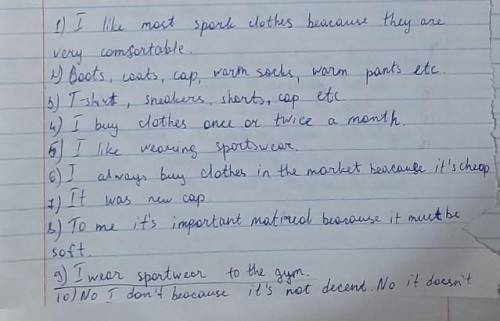 1) I like most spork clothes beacause they are
very comfortable.
2) Boots, coats, cap, warm socks, warm pants etc.
3) T-shirt, sneakers, shorts, cap etc
4) I buy clothes once or twice a month.
5) I like wearing sportswear.
6) I always buy clothes in the market beacause it's cheap
7) It was new cap
8) To me it's important matireal beacause it must be
soft.
9) I wear sportwear to the gym.
10) No I don't beacause it's not decent. No it doesn't